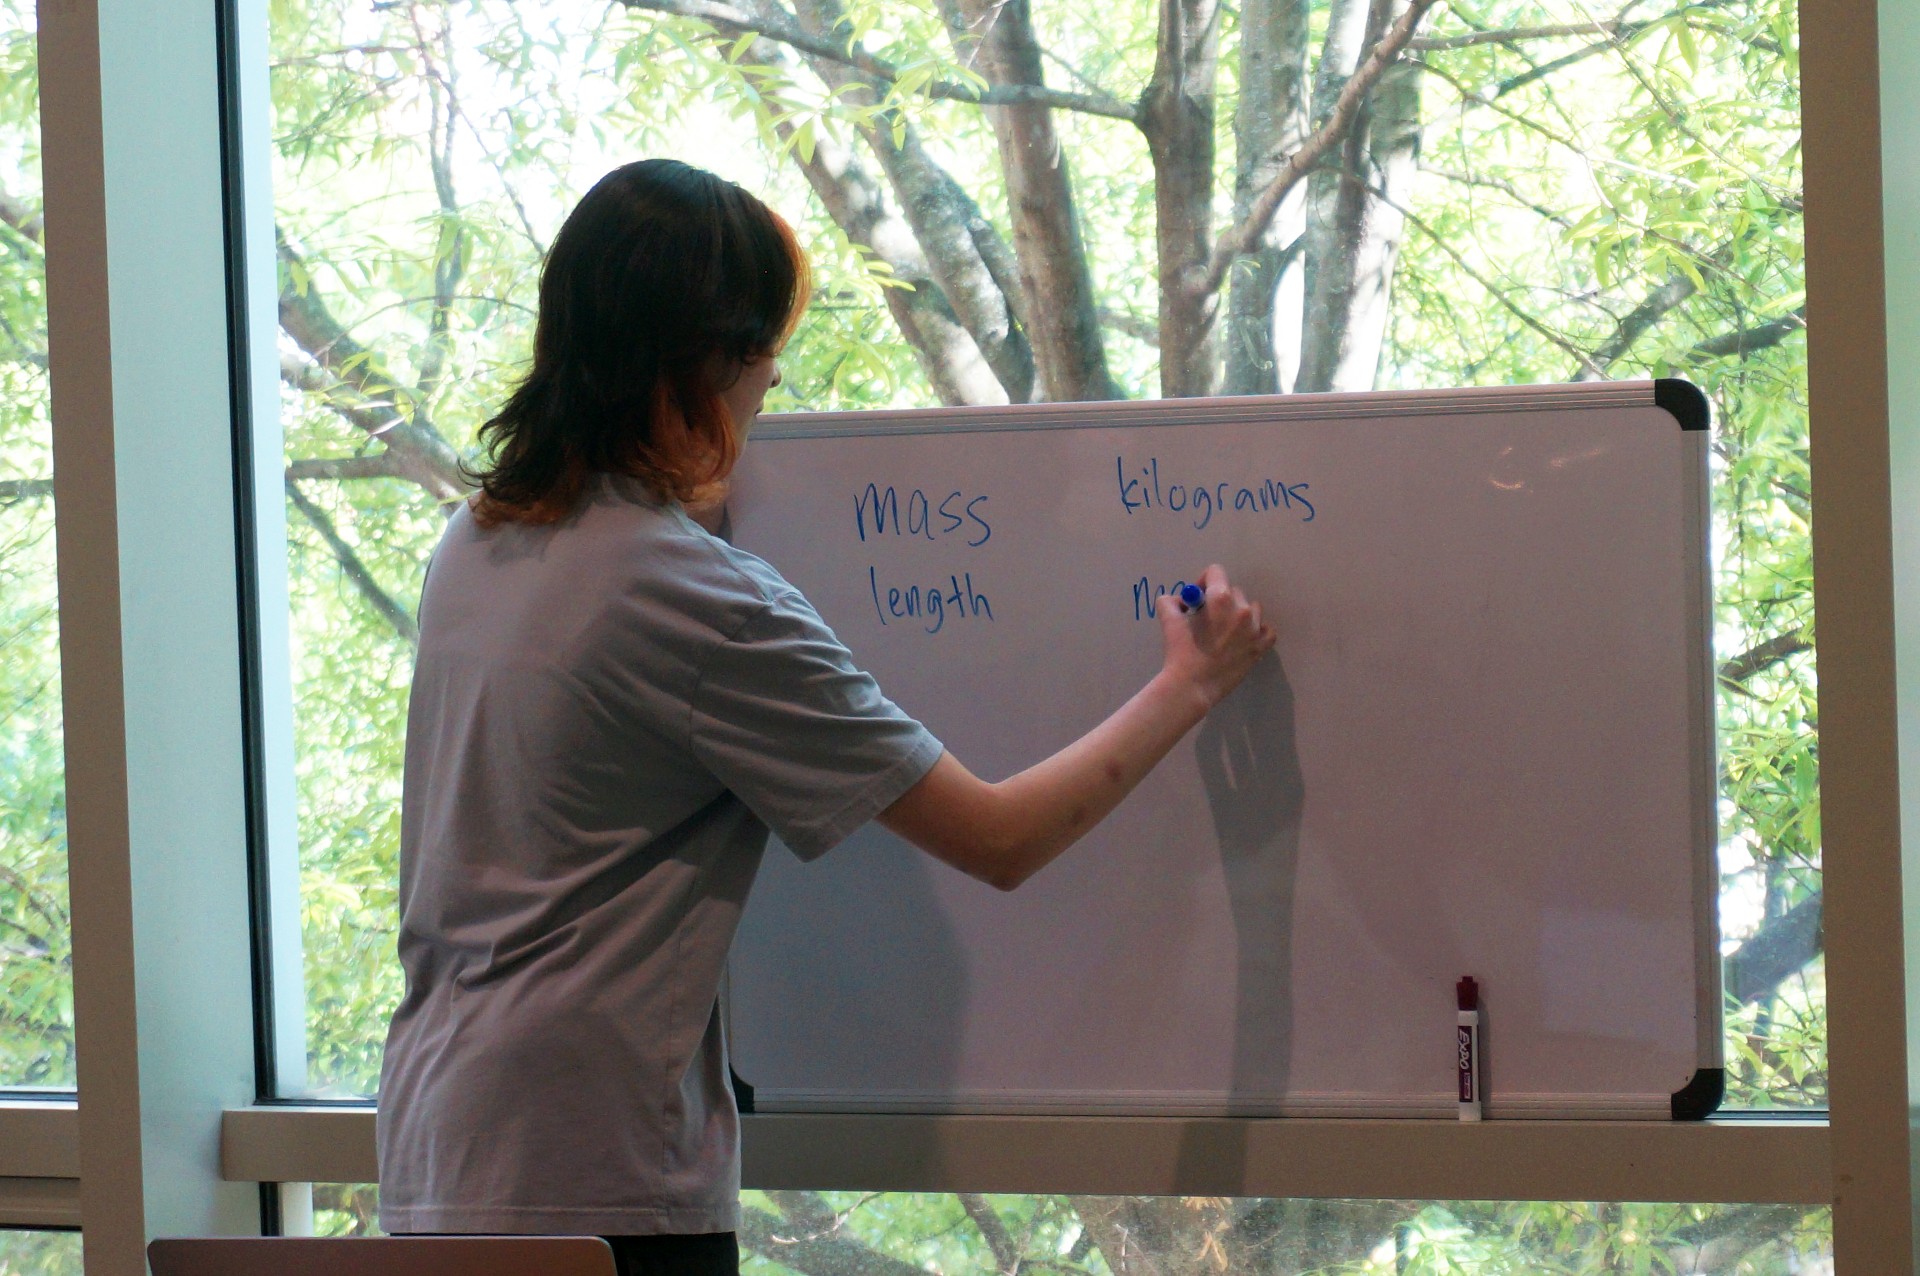 mass kilograms
length m
EXPO